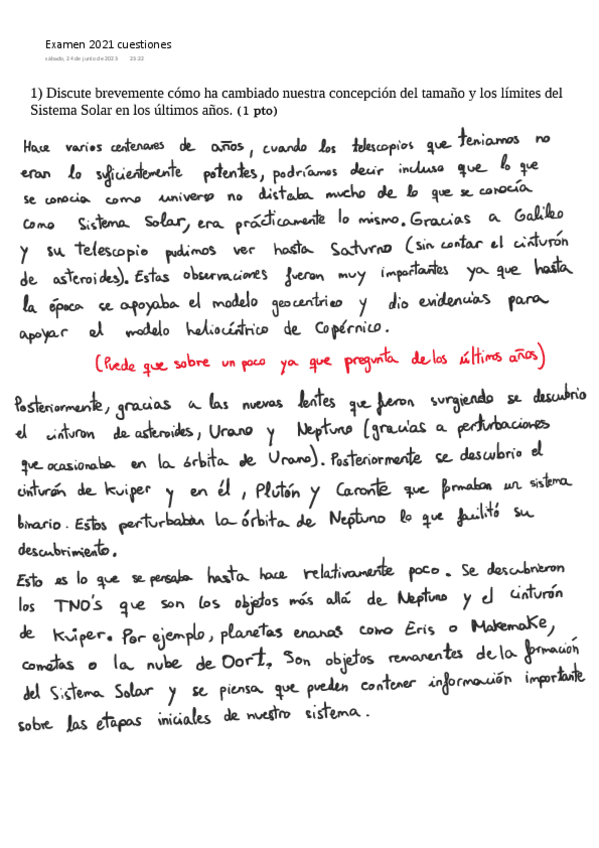 Examen 2021 cuestiones
sábado, 24 de junio de 2023 23:22
1) Discute brevemente cómo ha cambiado nuestra concepción del tamaño y los límites del
Sistema Solar en los últimos años. (1 pto)
Hace varios centenares de años, cuando los telescopios que teniamos no
eran lo suficientemente potentes, podríamos decir incluso que lo que
se conocia como universo no distaba mucho de lo que se conocía
como Sistema Solar, era prácticamente lo mismo. Gracias a Galileo
y su telescopio pudimos ver hasta Saturno (sin contar el cinturón
de asteroides). Estas observaciones fueron muy importantes ya que hasta
la época se apoyaba el modelo geocentrico y dio evidencias para
apoyar el modelo heliocéntrico de Copérnico.
(Puede que sobre un poco ya que pregunta de los últimos años)
Posteriormente, gracias a las nuevas lentes que fueron surgiendo se descubrio
el cinturon de asteroides, Urano y Neptuno (gracias a perturbaciones
que ocasionaba en la órbita de Urano). Posteriormente se descubrio el
cinturón de Kuiper y en él, Plutón y Caronte que formaban un sistema
binario. Estos perturbaban la órbita de Neptuno lo que facilitó su
descubrimiento.
Esto es lo que se pensaba hasta hace relativamente poco. Se descubrieron
los TNO's que son los objetos más allá de Neptuno y el cinturón
de Kuiper. Por ejemplo, planetas enanos como Eris o Makemake,
cometas o la nube de Oort. Son objetos remanentes de la formación
del Sistema Solar y se piensa que pueden contener información importante
sobre las etapas iniciales de nuestro sistema.